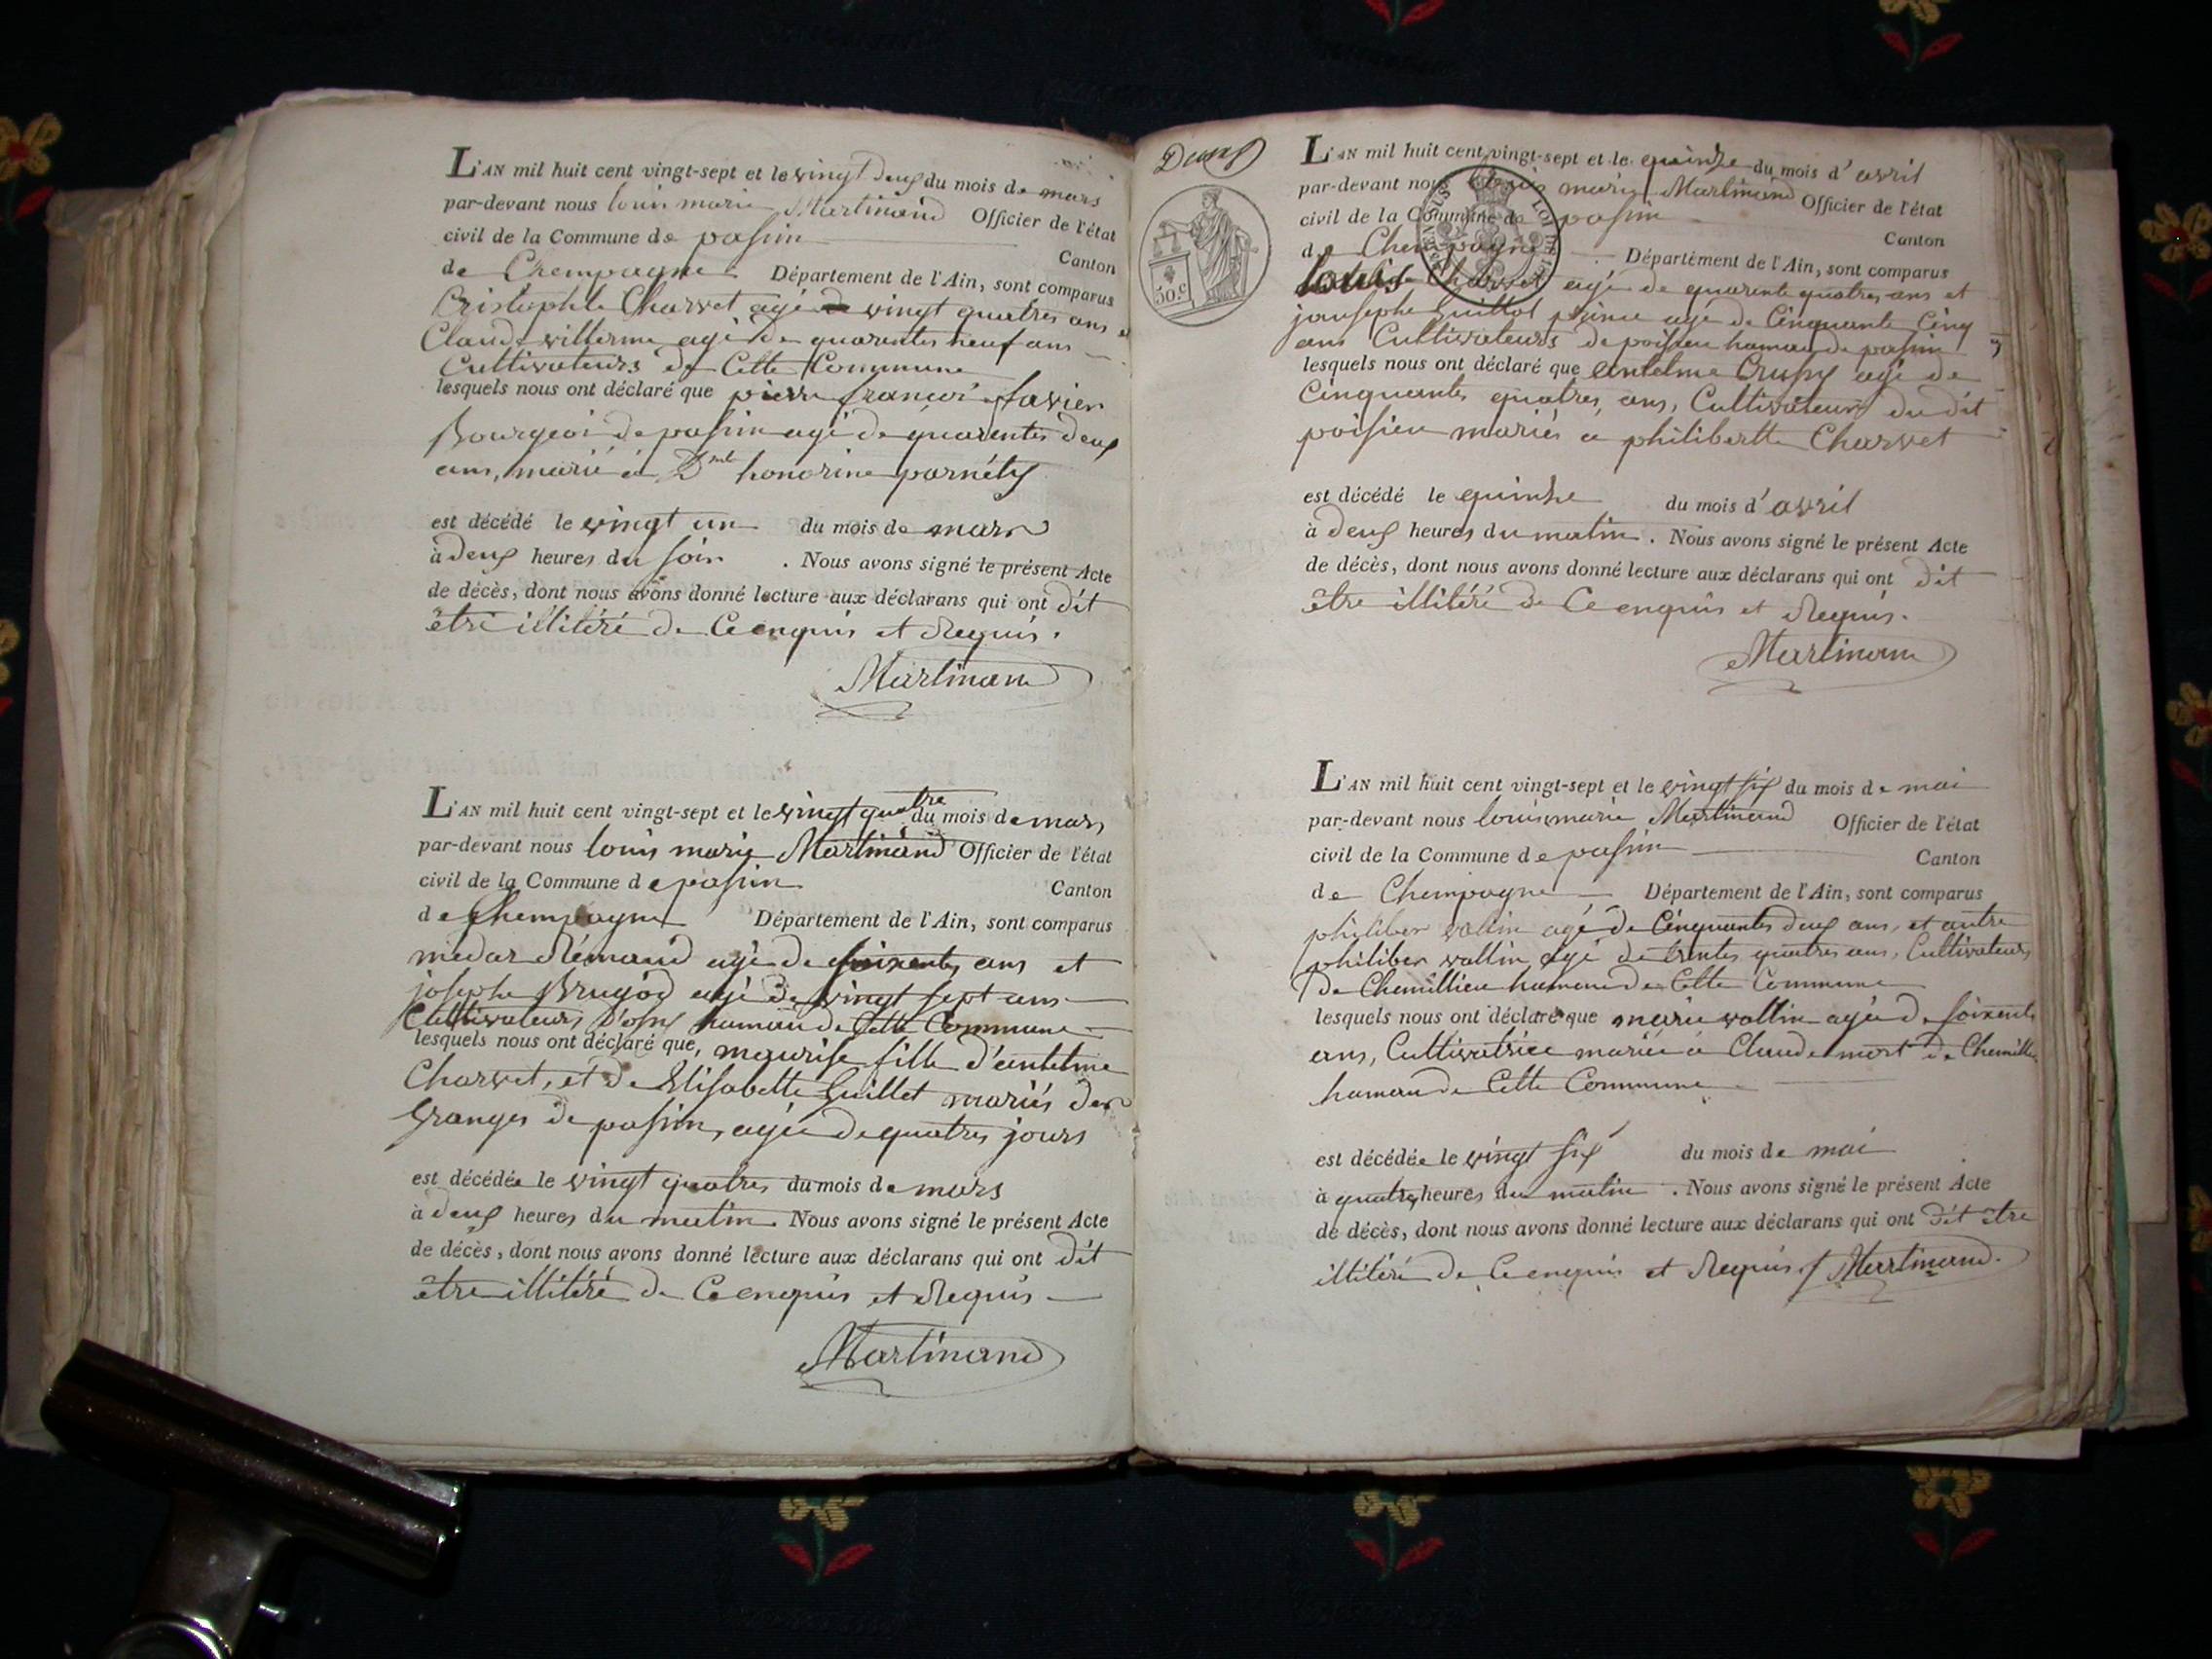 L'AN mil huit cent vingt-sept et le vingt deux du mois de mars
par-devant nous louis marie Martinand Officier de l'état
civil de la Commune de passin Canton
de Chempagne Département de l'Ain, sont comparus
Cristophle Charvet agé de vingt quatres ans et
Claude villerme agé de quarentes neuf ans
Cultivateurs de Cette Commune
lesquels nous ont déclaré que pierre françois xavier
Bourgeois de passin agé de quarentes deux
ans, marié à Dme honorine parnéty
est décédé le vingt un du mois de mars
à deux heures du soir . Nous avons signé le présent Acte
de décès, dont nous avons donné lecture aux déclarans qui ont dit
être illitéré de Ce enquis et Requis.
Martinand
L'AN mil huit cent vingt-sept et le vingt quatre du mois de mars
par-devant nous louis marie Martinand Officier de l'état
civil de la Commune de passin Canton
de Chempagne Département de l'Ain, sont comparus
medar Rémand agé de soixentes ans et
josephe Brugod agé de vingt sept ans
Cultivateurs hamau de Cette Commune
lesquels nous ont déclaré que, mourise fille d'antelme
Charvet, et de Elisabette Guillet mariés des
Granges de passin, agée de quatres jours
est décédée le vingt quatres du mois de mars
à deux heures du matin. Nous avons signé le présent Acte
de décès, dont nous avons donné lecture aux déclarans qui ont dit
être illitéré de Ce enquis et Requis
Martinand
Deux
50.c
L'AN mil huit cent vingt-sept et le quinze du mois d'avril
par-devant nous louis marie Martinand Officier de l'état
civil de la Commune de passin Canton
de Chempagne Département de l'Ain, sont comparus
louis Charvet agé de quarente quatres ans et
jousephe Guillot agé de Cinquante Cinq
ans Cultivateurs de poisieu hamau de passin
lesquels nous ont déclaré que antelme Crussy agé de
Cinquantes quatres ans, Cultivateur du dit
poisieu mariés a philibertte Charvet
est décédé le quinze du mois d'avril
à deux heures du matin. Nous avons signé le présent Acte
de décès, dont nous avons donné lecture aux déclarans qui ont dit
être illitéré de Ce enquis et Requis.
Martinand
L'AN mil huit cent vingt-sept et le vingt six du mois de mai
par-devant nous louis marie Martinand Officier de l'état
civil de la Commune de passin Canton
de Chempagne Département de l'Ain, sont comparus
philiber vallin agé de Cinquantes deux ans, et autre
philiber vallin agé de trentes quatres ans, Cultivateurs
de Chemillieu hamau de Cette Commune
lesquels nous ont déclaré que marie vallin agée de soixente
ans, Cultivatrice mariée à Claude mort de Chemillieu
hamau de Cette Commune
est décédée le vingt six du mois de mai
à quatres heures du matin . Nous avons signé le présent Acte
de décès, dont nous avons donné lecture aux déclarans qui ont dit être
illitéré de Ce enquis et Requis Martinand.